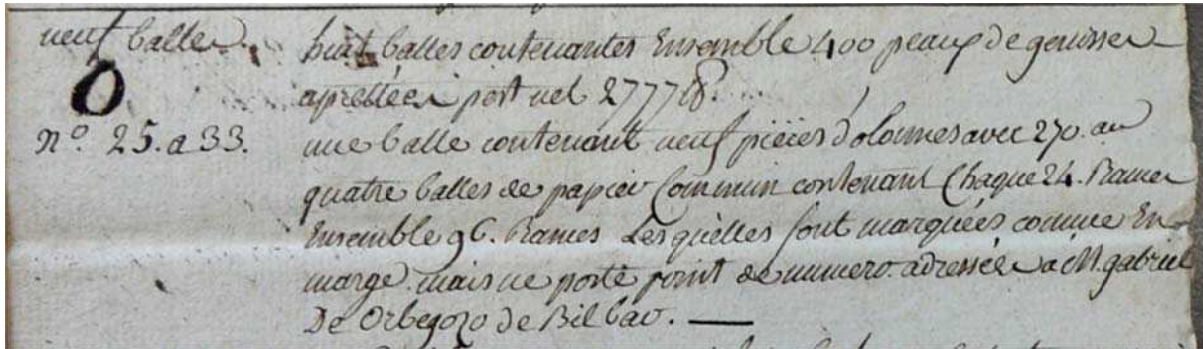 neuf balles.
O
n.º 25. a 33.
huit balles contenantes Ensemble 400 peaux de genisses
aprestées net 2777 ℔.
une balle contenant neuf piéces d'olonnes avec 270. au
quatre balles de papier Commun contenant Chaque 24. Rames
Ensemble 96. Rames Lesquèlles sont marquées comme En
marge. mais ne porte point de numero. adressées a M. gabriel
De Orbegozo de Bilbao. —